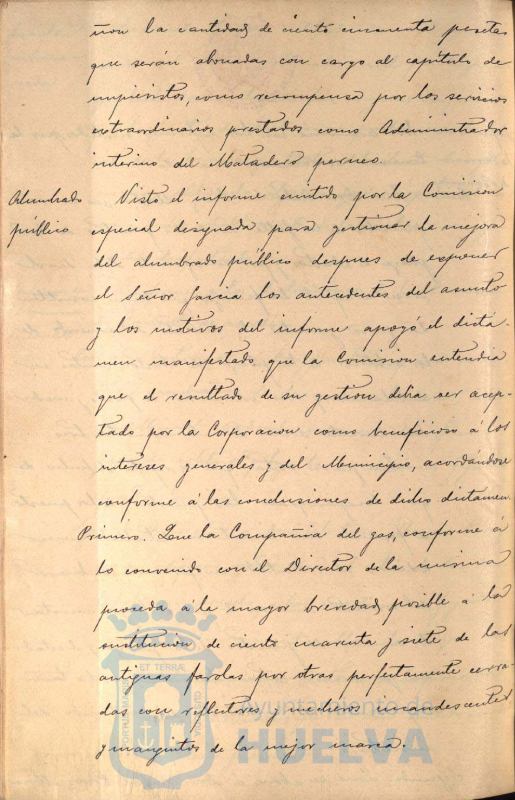 ñon la cantidad de ciento cincuenta pesetas
que serán abonadas con cargo al capítulo de
imprevistos, como recompensa por los servicios
extraordinarios prestados como Administrador
interino del Matadero perneo.
Alumbrado público
Visto el informe emitido por la Comision
especial designada para gestionar la mejora
del alumbrado público despues de exponer
el Señor García los antecedentes del asunto
y los motivos del informe apoyó el dictá-
men manifestado, que la Comision entendia
que el resultado de su gestion debia ser acep-
tado por la Corporacion como beneficioso á los
intereses generales y del Municipio, acordándose
conforme á las conclusiones de dicho dictamen.
Primero. Que la Compañia del gas, conforme á
lo convenido con el Director de la misma
proceda á la mayor brevedad posible á la
sustitucion de ciento cuarenta y siete de las
antiguas farolas por otras perfectamente cerra-
das con reflectores y mecheros incandescentes
y manguitos de la mejor marca.
ET TERRÆ
Ayuntamiento de
HUELVA